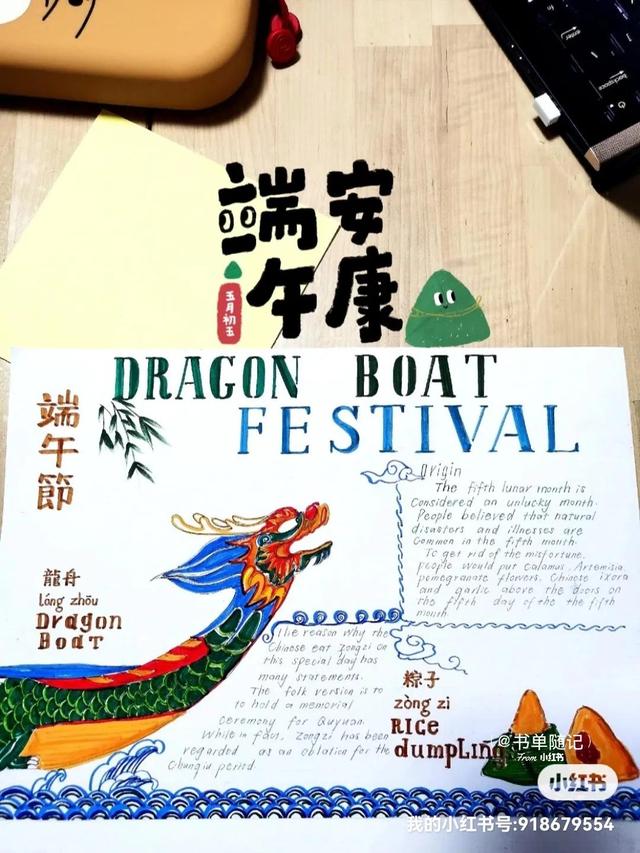 端午
安康
五月初五
DRAGON BOAT
FESTIVAL
端午節
龍舟
lóng zhōu
Dragon
Boat
Origin
The fifth lunar month is
Considered an unlucky month.
People believed that natural
disasters and illnesses are
Common in the fifth month.
To get rid of the misfortune,
people would put calamus, Artemisia,
pomegranate flowers, Chinese ixora
and garlic above the doors on
the fifth day of the the fifth
month.
The reason why the
Chinese eat zongzi on
this special day has
many statements.
The folk version is to
to hold a memorial
ceremony for Quyuan.
While in fact, Zongzi has been
regarded as an oblation for the
Chunqiu period.
粽子
zòng zi
RICE
dumpLing
@书单随记
From 小红书
小红书
我的小红书号:918679554
enter
backspace